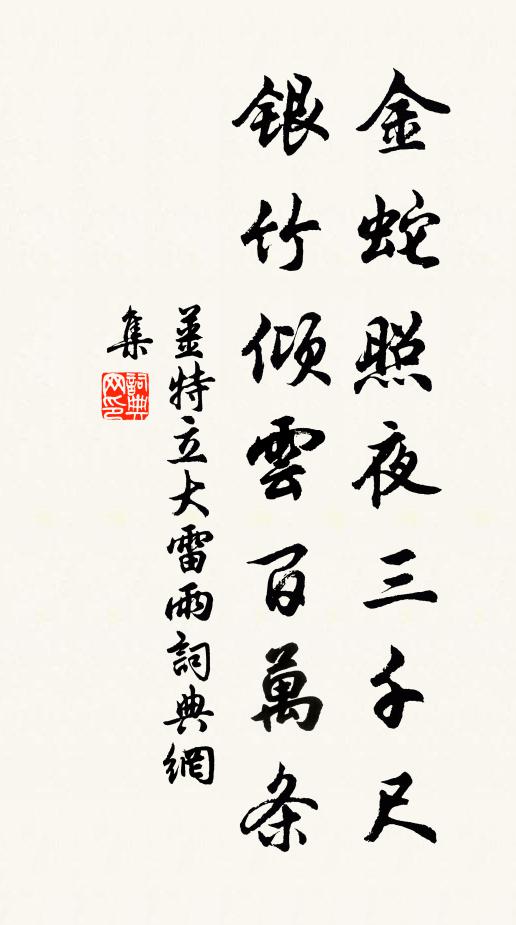 金蛇照夜三千尺
銀竹傾雲百萬条
姜特立大雷雨詞典網
集
詞典网印